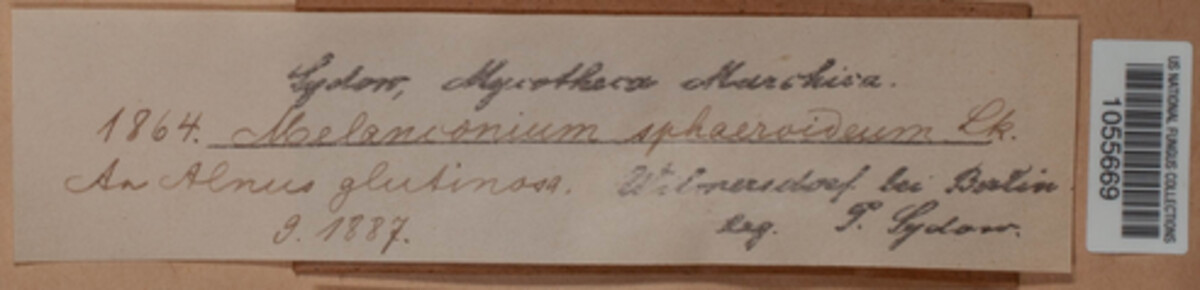 Sydow, Mycotheca Marchica.
1864. Melanconium sphaeroideum Lk.
An Alnus glutinosa. Wilmersdorf bei Berlin.
9. 1887. leg. P. Sydow.
US NATIONAL FUNGUS COLLECTIONS
1055669